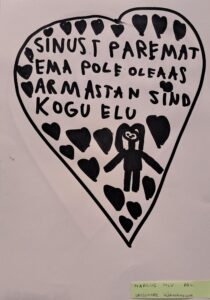 SINUST PAREMAT
EMA POLE OLEAAS
ARMASTAN SIND
KOGU ELU